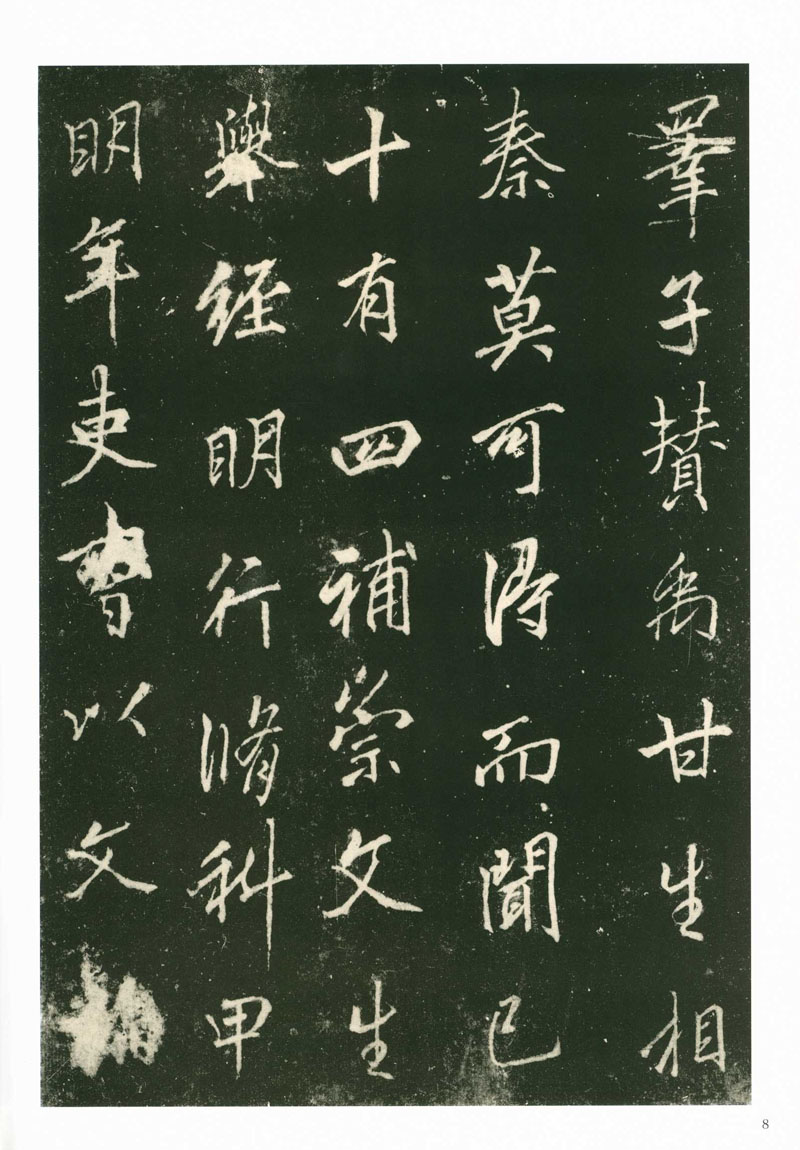 睪子贊禹甘生相
秦莫可得而聞已
十有四補崇文生
舉經明行脩科甲
明年吏曹以文翰
8